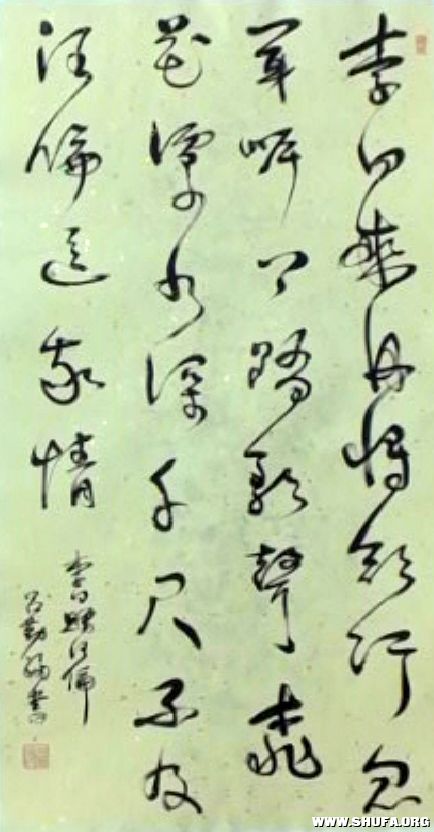 李白乘舟將欲行忽
闻岸上踏歌聲桃
花潭水深千尺不及
汪倫送我情
李白赠汪倫
勤書
WWW.SHUFA.ORG